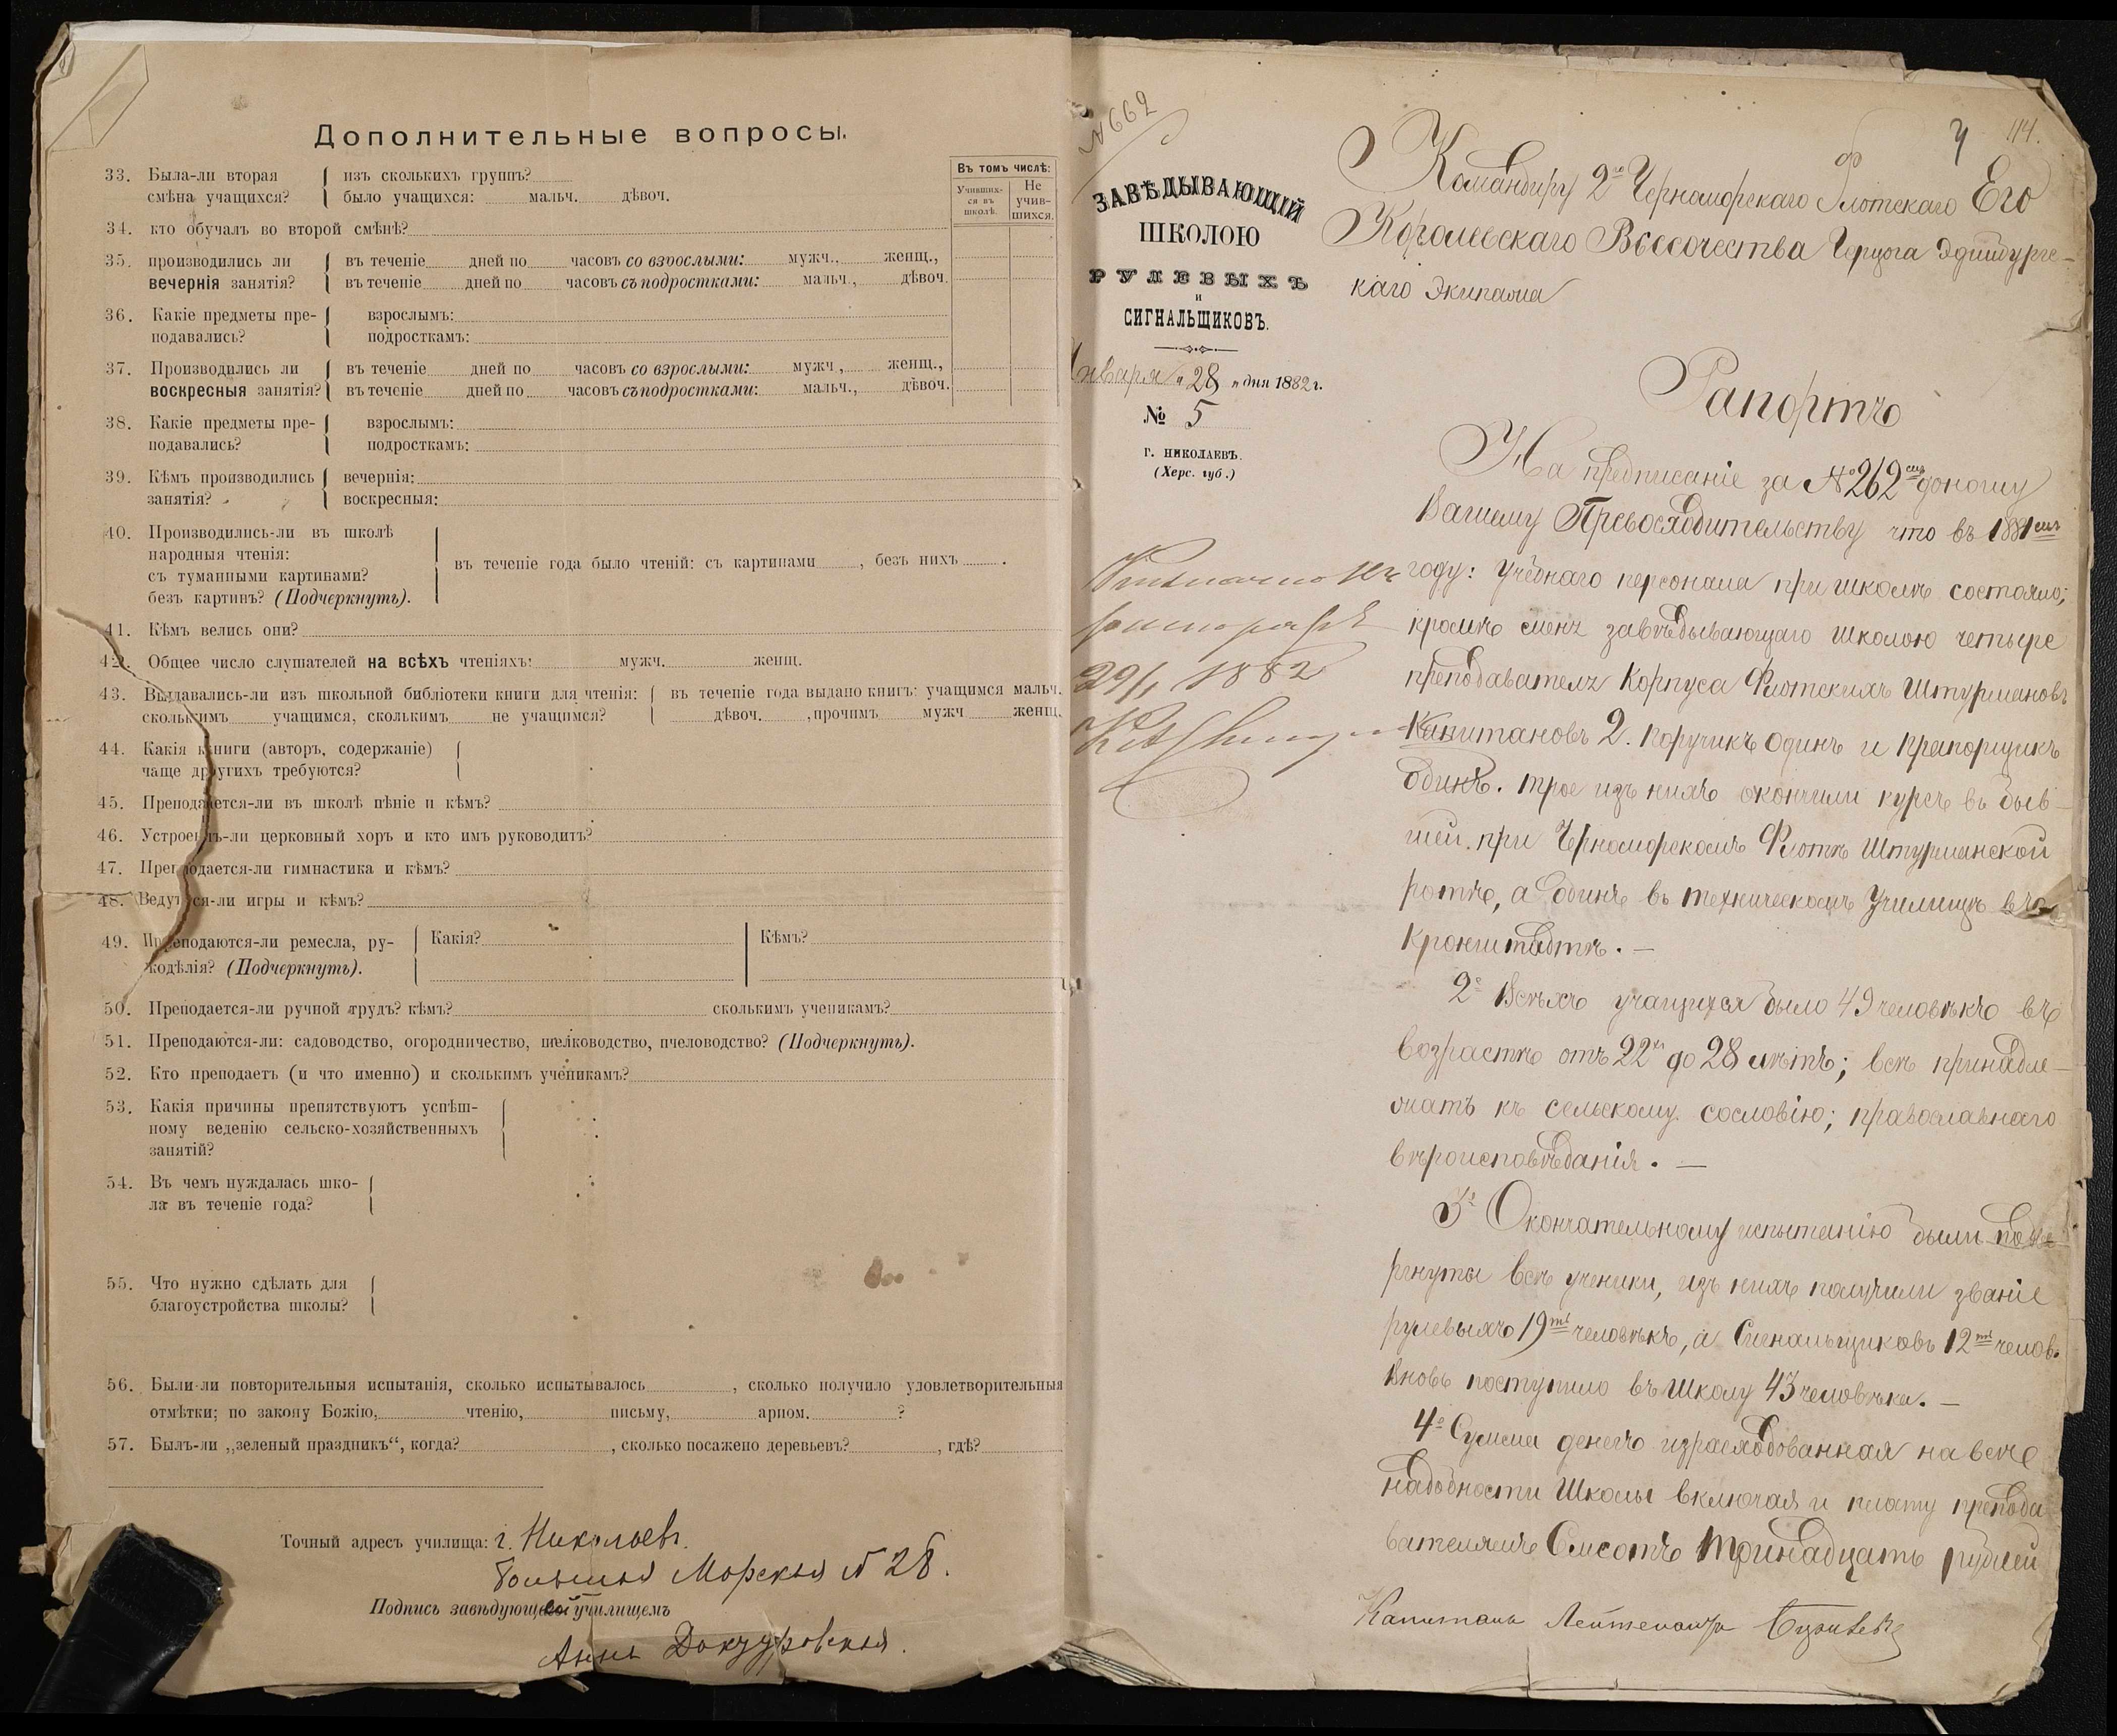 Дополнительные вопросы.
Въ томъ числѣ:
Учивших-
ся въ
школѣ.
Не
учив-
шихся.
33. Была-ли вторая смѣна учащихся?
изъ сколькихъ группъ?
было учащихся: мальч. дѣвоч.
34. кто обучалъ во второй смѣнѣ?
35. производились ли вечернія занятія?
въ теченіе дней по часовъ со взрослыми: мужч., женщ.,
въ теченіе дней по часовъ съ подростками: мальч., дѣвоч.
36. Какіе предметы пре-
подавались?
взрослымъ:
подросткамъ:
37. Производились ли воскресныя занятія?
въ теченіе дней по часовъ со взрослыми: мужч, женщ.,
въ теченіе дней по часовъ съ подростками: мальч., дѣвоч.
38. Какіе предметы пре-
подавались?
взрослымъ:
подросткамъ:
39. Кѣмъ производились
занятія?
вечернія:
воскресныя:
40. Производились-ли въ школѣ
народныя чтенія:
съ туманными картинами?
безъ картинъ? (Подчеркнуть).
въ теченіе года было чтеній: съ картинами , безъ нихъ .
41. Кѣмъ велись они?
42. Общее число слушателей на всѣхъ чтеніяхъ: мужч. женщ.
43. Выдавались-ли изъ школьной библіотеки книги для чтенія:
сколькимъ учащимся, сколькимъ не учащимся?
въ теченіе года выдано книгъ: учащимся мальч.
дѣвоч. , прочимъ мужч женщ.
44. Какія книги (авторъ, содержаніе)
чаще другихъ требуются?
45. Преподается-ли въ школѣ пѣніе и кѣмъ?
46. Устроенъ-ли церковный хоръ и кто имъ руководитъ?
47. Преподается-ли гимнастика и кѣмъ?
48. Ведутся-ли игры и кѣмъ?
49. Преподаются-ли ремесла, ру-
кодѣлія? (Подчеркнуть).
Какія?
Кѣмъ?
50. Преподается-ли ручной трудъ? кѣмъ? сколькимъ ученикамъ?
51. Преподаются-ли: садоводство, огородничество, шелководство, пчеловодство? (Подчеркнуть).
52. Кто преподаетъ (и что именно) и сколькимъ ученикамъ?
53. Какія причины препятствуютъ успѣш-
ному веденію сельско-хозяйственныхъ
занятій?
54. Въ чемъ нуждалась шко-
ла въ теченіе года?
55. Что нужно сдѣлать для
благоустройства школы?
56. Были-ли повторительныя испытанія, сколько испытывалось , сколько получило удовлетворительныя
отмѣтки; по закону Божію, чтенію, письму, ариѳм. ?
57. Былъ-ли „зеленый праздникъ“, когда? , сколько посажено деревьевъ? , гдѣ?
Точный адресъ училища: г. Николаевъ.
Большая Морская № 28.
Подпись завѣдующей училищемъ
Анна Докудовская.
№ 662
114.
ЗАВѢДЫВАЮЩІЙ
ШКОЛОЮ
РУЛЕВЫХЪ
и
СИГНАЛЬЩИКОВЪ.
Января „28„ дня 1882 г.
№ 5
г. НИКОЛАЕВЪ.
(Херс. губ.)
29/1 1882
Командиру 2го Черноморскаго Флотскаго Его
Королевскаго Высочества Герцога Эдинбургс-
каго Экипажа
Рапортъ
На предписаніе за № 262мъ доношу
Вашему Превосходительству что въ 1881мъ
году: Учебнаго персонала при школѣ состояло;
кромѣ меня завѣдывающаго школою четыре
преподавателя Корпуса Флотскихъ Штурмановъ
Капитановъ 2. поручикъ одинъ и прапорщикъ
одинъ. трое изъ нихъ окончили курсъ въ быв-
шей при Черноморскомъ Флотѣ Штурманской
ротѣ, а одинъ въ техническомъ Училищѣ въ
Кронштадтѣ. —
2е Всѣхъ учащихся было 49 человѣкъ въ
возрастѣ отъ 22хъ до 28 лѣтъ; всѣ принадле-
жатъ къ сельскому сословію; православнаго
вѣроисповѣданія. —
3е Окончательному испытанію были подве
ргнуты всѣ ученики, изъ нихъ получили званіе
рулевыхъ 19ть человѣкъ, а Сигнальщиковъ 12ть челов.
Вновь поступило въ Школу 43 человѣка. —
4е Сумма денегъ израсходованная на всѣ
надобности Школы включая и плату препода
вателямъ Семсотъ тринадцать рублей
Капитанъ Лейтенантъ